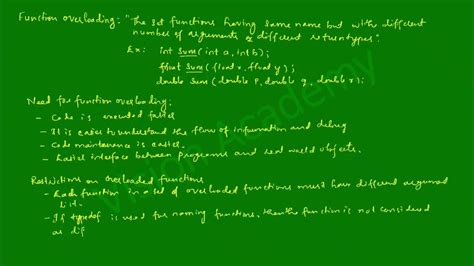 Function overloading: "The set functions having same name but with different
number of arguments & different return types".
Ex: int sum(int a, int b);
float sum(float x, float y);
double sum(double p, double q, double r);
Need for function overloading:
- Code is executed faster
- It is easier to understand the flow of information and debug
- Code maintenance is easier.
- Easier interface between programs and real world objects.
Restrictions on overloaded functions
- Each function in a set of overloaded functions must have different argument
list.
- If typedef is used for naming functions, then the function is not considered
as dif
Academy